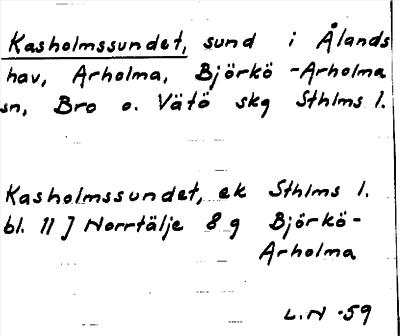 Kasholmssundet, sund i Ålands
hav, Arholma, Björkö-Arholma
sn, Bro o. Vätö skg Sthlms l.
Kasholmssundet, ek Sthlms l.
bl. 11 J Norrtälje 8 g Björkö-
Arholma
L.N -59